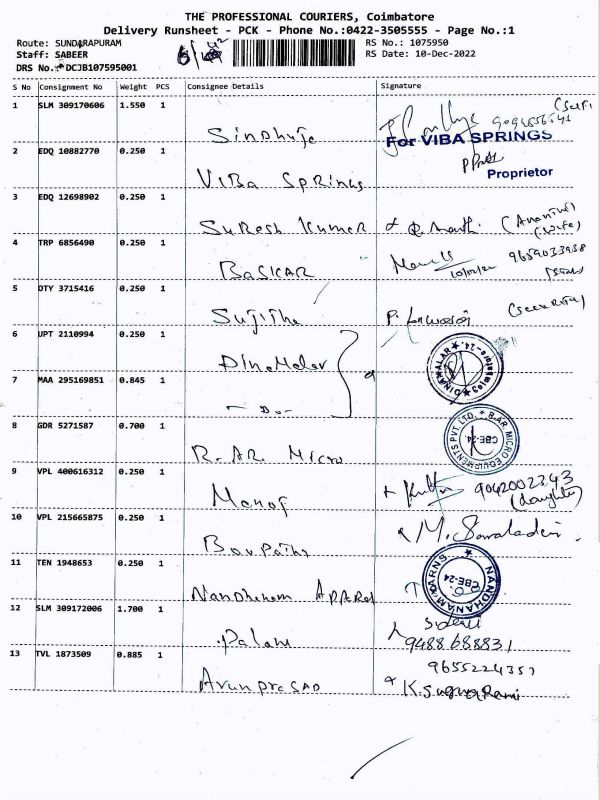 THE PROFESSIONAL COURIERS, Coimbatore
Delivery Runsheet - PCK - Phone No.:0422-3505555 - Page No.:1
Route: SUNDARAPURAM
RS No.: 1075950
Staff: SABEER
RS Date: 10-Dec-2022
DRS No.: DCJB107595001
S No Consignment No Weight PCS Consignee Details Signature
1 SLM 309170606 1.550 1 Sindhuje
For VIBA SPRINGS
Proprietor
2 EDQ 10882770 0.250 1 VIBa SPRINGS
3 EDQ 12698902 0.250 1 Suresh Kumar (wife)
4 TRP 6856490 0.250 1 BaSKAR 9659033938
10/12/22
5 DTY 3715416 0.250 1 Sujithe
6 UPT 2110994 0.250 1 Dinamalar
DINAMALAR
7 MAA 295169851 0.845 1 - Do -
8 GDR 5271587 0.700 1 R.AR. Micro
R.AR. MICRO EQUIPMENTS PVT. LTD. CBE-24
9 VPL 400616312 0.250 1 Manoj 9042002343
(daughter)
10 VPL 215665875 0.250 1 Boopathi
11 TEN 1948653 0.250 1 Nandhenam
NANDHANAM YARNS CBE-24
12 SLM 309172006 1.700 1 Palani
9488688831
13 TVL 1873509 0.885 1 ArunpraSAD 9655224357